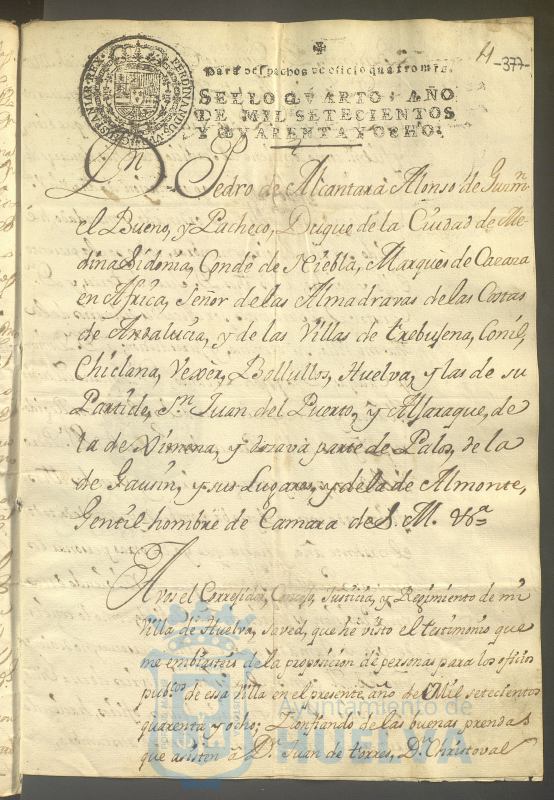 ✠
H -377-
Para despachos de oficio quatro mrs.
SELLO QVARTO, AÑO
DE MIL SETECIENTOS
Y QVARENTA Y OCHO.
Dn Pedro de Alcantara Alonso de Guzmn
el Bueno, y Pacheco, Duque de la Ciudad de Me
dina Sidonia, Conde de Niebla, Marquès de Cazaza
en Africa, Señor de las Almadravas de las Costas
de Andalucia, y de las Villas de trebujena, Conil,
Chiclana, Vexer, Bollullos, Huelva, y las de su
Partido, Sn Juan del Puerto, y Alfaraque, de
la de Ximena, y dozava parte de Palos, de la
de Gausin, y sus Lugares, y de la de Almonte,
Gentil-hombre de Camara de S. M. &a
A vos el Corregidor, Concejo, Justicia, y Regimiento de mi
Villa de Huelva, saved, que hè visto el testimonio que
me embiasteis de la proposicion de personas para los oficios
publcos de esa Villa en el presente año de Mil setecientos
quarenta y ocho; I confiando de las buenas prendas
que asisten à Dn Juan de torres, Dn Christoval
Ayuntamiento de
HUELVA